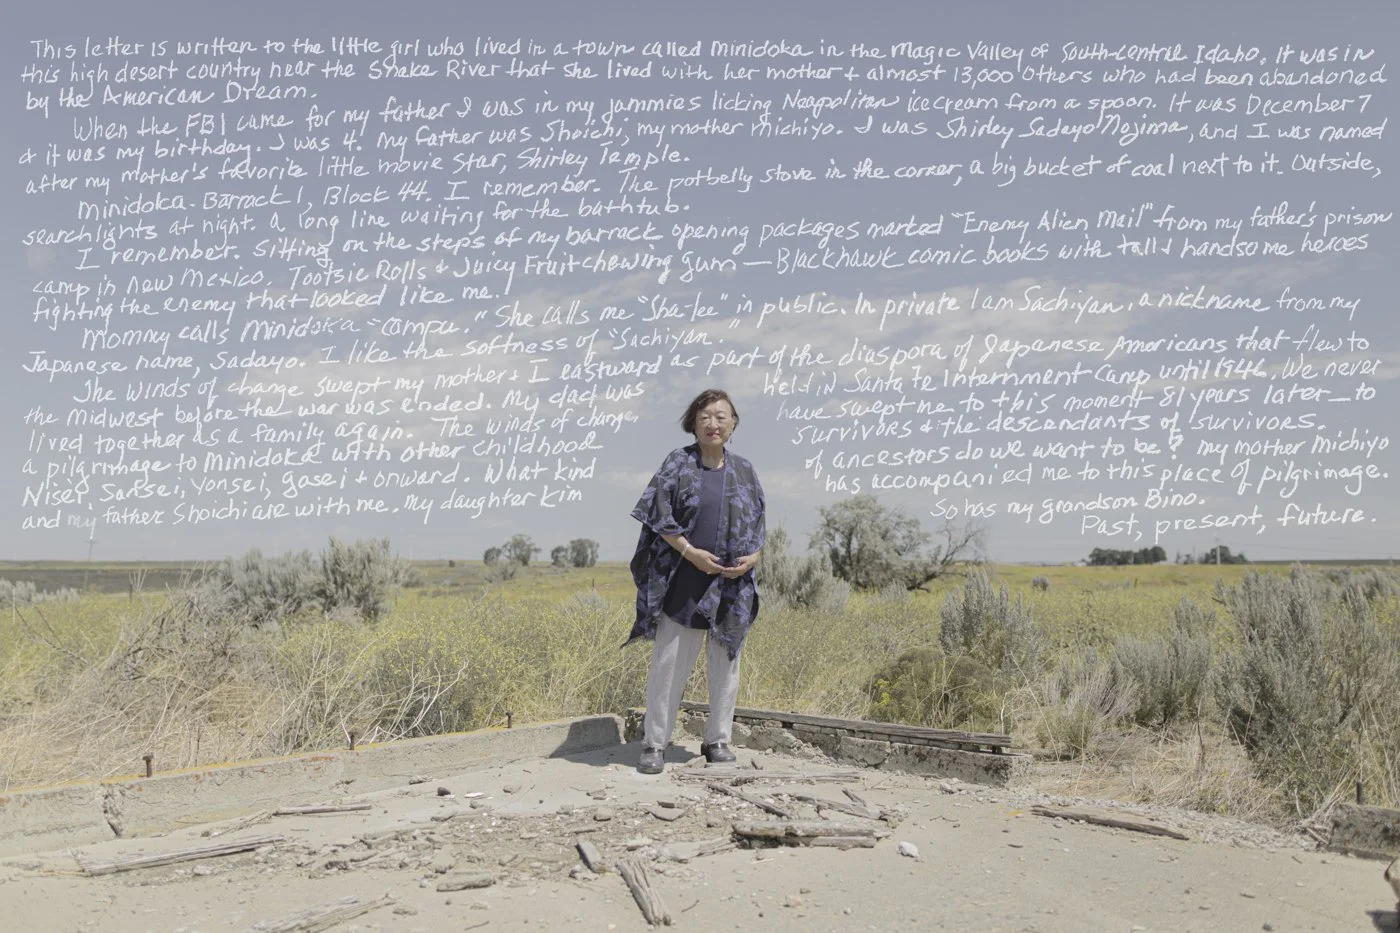 This letter is written to the little girl who lived in a town called Minidoka in the Magic Valley of South-Central Idaho. It was in
this high desert country near the Snake River that she lived with her mother + almost 13,000 others who had been abandoned
by the American Dream.
When the FBI came for my father I was in my jammies licking Neapolitan ice cream from a spoon. It was December 7
+ it was my birthday. I was 4. My father was Shoichi, my mother Michiyo. I was Shirley Sadayo Nojima, and I was named
after my mother's favorite little movie star, Shirley Temple.
Minidoka- Barrack 1, Block 44. I remember. The potbelly stove in the corner, a big bucket of coal next to it. Outside,
searchlights at night. A long line waiting for the bathtub.
I remember. Sitting on the steps of my barrack opening packages marked "Enemy Alien Mail" from my father's prison
camp in New Mexico. Tootsie Rolls + Juicy Fruit chewing gum — Blackhawk comic books with tall + handsome heroes
fighting the enemy that looked like me.
Mommy calls Minidoka "campu." She calls me "Sha-lee" in public. In private I am Sachiyan, a nickname from my
Japanese name, Sadayo. I like the softness of "Sachiyan."
The winds of change swept my mother + I eastward as part of the diaspora of Japanese Americans that flew to
the Midwest before the war was ended. My dad was held in Santa Fe Internment Camp until 1946. We never
lived together as a family again. The winds of change have swept me to this moment 81 years later — to
a pilgrimage to Minidoka with other childhood survivors + the descendants of survivors.
Nisei, Sansei, Yonsei, Gosei + onward. What kind of ancestors do we want to be? My mother Michiyo
and my father Shoichi are with me. My daughter Kim has accompanied me to this place of pilgrimage.
So has my grandson Bino.
Past, present, future.